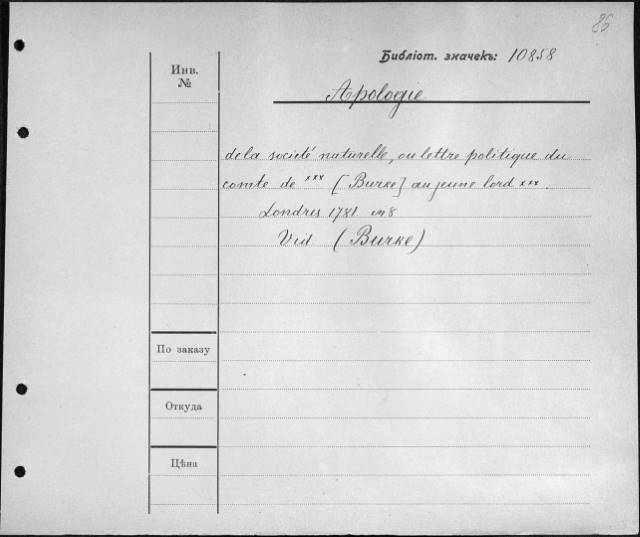 86
Библіот. значекъ: 10858
Инв. №
Apologie
de la societé naturelle, ou lettre politique du
comte de *** [Burke] au jeune lord ***.
Londres 1781 in 8
Vid (Burke)
По заказу
Откуда
Цѣна